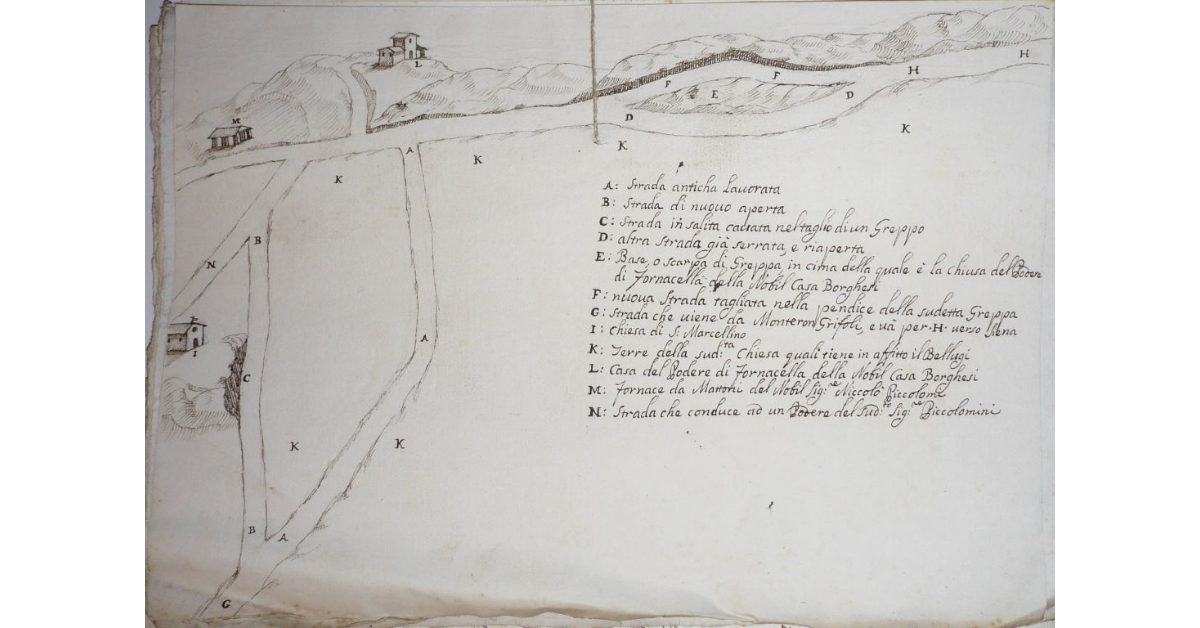 L
H
H
F
F
E
D
D
M
K
K
A
K
K
B
N
I
A
C
K
K
B
A
G
A: Strada anticha Lauorata
B: Strada di nuouo aperta
C: Strada in salita cauata nel taglio di un Greppo
D: altra Strada già serrata, e riaperta
E: Base, o scarpa di Greppa in cima della quale è la Chiusa del Podere
di Fornacella della Nobil Casa Borghesi
F: nuoua Strada tagliata nella pendice della sudetta Greppa
G: Strada che uiene da Monteron Grifoli, e uà per H uerso Siena
I: Chiesa di S. Marcellino
K: Terre della sud:ta Chiesa quali tiene in affitto il Bellugi
L: Casa del Podere di Fornacella della Nobil Casa Borghesi
M: Fornace da Mattoni del Nobil Sig:re Niccolò
N: Strada che conduce ad un Podere del Sud:to Sig:re Piccolomini